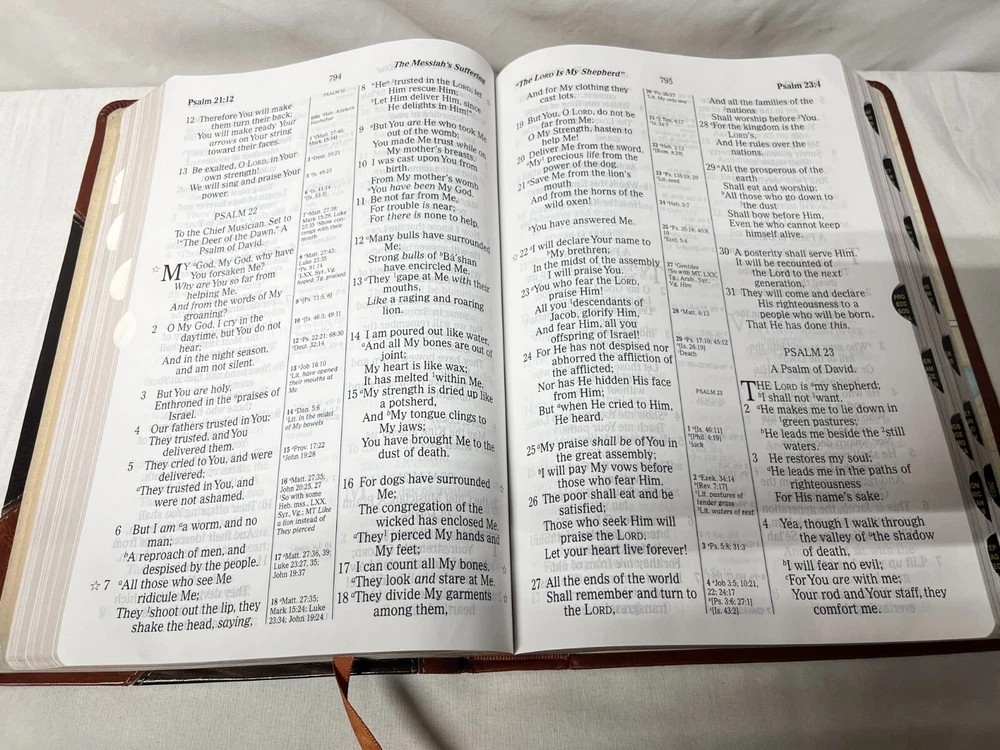 Psalm 21:12
794
The Messiah's Suffering
12 Therefore You will make
them turn their back;
You will make ready Your
arrows on Your string
toward their faces.
13 Be exalted, O LORD, in Your
own strength!
We will sing and praise Your
power.
PSALM 22
To the Chief Musician. Set to
"The Deer of the Dawn." A
Psalm of David.
MY God, My God, why have
You forsaken Me?
Why are You so far from
helping Me,
And from the words of My
groaning?
2 O My God, I cry in the
daytime, but You do not
hear;
And in the night season,
and am not silent.
3 But You are holy,
Enthroned in the praises of
Israel.
4 Our fathers trusted in You;
They trusted, and You
delivered them.
5 They cried to You, and were
delivered;
They trusted in You, and
were not ashamed.
6 But I am a worm, and no
man;
A reproach of men, and
despised by the people.
☆ 7 All those who see Me
ridicule Me;
They shoot out the lip, they
shake the head, saying,
PSALM 22
7 Matt. 27:39;
Mark 15:29; Luke
23:35 Show con-
tempt with their
mouth
8 Matt. 27:43;
Luke 23:35
Ps. 91:14
LXX, Syr., Vg.
hoped; Tg. praised
9 [Ps. 71:5, 6]
10 [Is. 46:3; 49:1]
12 Ps. 22:21; 68:30
Deut. 32:14
13 Job 16:10
Lit. have opened
their mouths at
Me
14 Dan. 5:6
Lit. in the midst
of My bowels
15 Prov. 17:22
John 19:28
16 Matt. 27:35;
John 20:25, 27
So with some
Heb. mss., LXX,
Syr., Vg.; MT Like
a lion instead of
They pierced
17 Matt. 27:36, 39;
Luke 23:27, 35;
John 19:37
18 Matt. 27:35;
Mark 15:24; Luke
23:34; John 19:24
8 "He trusted in the LORD, let
Him rescue Him;
Let Him deliver Him, since
He delights in Him!"
9 But You are He who took Me
out of the womb;
You made Me trust while on
My mother's breasts.
10 I was cast upon You from
birth.
From My mother's womb
You have been My God.
11 Be not far from Me,
For trouble is near;
For there is none to help.
12 Many bulls have surrounded
Me;
Strong bulls of Bā'shan
have encircled Me.
13 They gape at Me with their
mouths,
Like a raging and roaring
lion.
14 I am poured out like water,
And all My bones are out of
joint;
My heart is like wax;
It has melted within Me.
15 My strength is dried up like
a potsherd,
And My tongue clings to
My jaws;
You have brought Me to the
dust of death.
16 For dogs have surrounded
Me;
The congregation of the
wicked has enclosed Me.
They pierced My hands and
My feet;
17 I can count all My bones.
They look and stare at Me.
18 They divide My garments
among them,
"The LORD Is My Shepherd"
795
Psalm 23:4
And for My clothing they
cast lots.
19 But You, O LORD, do not be
far from Me;
O My Strength, hasten to
help Me!
20 Deliver Me from the sword,
My precious life from the
power of the dog.
21 Save Me from the lion's
mouth
And from the horns of the
wild oxen!
You have answered Me.
☆ 22 I will declare Your name to
My brethren;
In the midst of the assembly
I will praise You.
23 You who fear the LORD,
praise Him!
All you descendants of
Jacob, glorify Him,
And fear Him, all you
offspring of Israel!
24 For He has not despised nor
abhorred the affliction of
the afflicted;
Nor has He hidden His face
from Him;
But when He cried to Him,
He heard.
25 My praise shall be of You in
the great assembly;
I will pay My vows before
those who fear Him.
26 The poor shall eat and be
satisfied;
Those who seek Him will
praise the LORD.
Let your heart live forever!
27 All the ends of the world
Shall remember and turn to
the LORD,
28 Matt. 6:13
29 Ps. 17:10; 45:12
[Is. 26:19]
Death
PSALM 23
1 [Is. 40:11]
[Phil. 4:19]
lack
2 Ezek. 34:14
[Rev. 7:17]
Lit. pastures of
tender grass
Lit. waters of rest
3 Ps. 5:8; 31:3
4 Job 3:5; 10:21,
22; 24:17
[Ps. 3:6; 27:1]
[Is. 43:2]
And all the families of the
nations
Shall worship before You.
28 For the kingdom is the
LORD's,
And He rules over the
nations.
29 All the prosperous of the
earth
Shall eat and worship;
All those who go down to
the dust
Shall bow before Him,
Even he who cannot keep
himself alive.
30 A posterity shall serve Him.
It will be recounted of
the Lord to the next
generation,
31 They will come and declare
His righteousness to a
people who will be born,
That He has done this.
PSALM 23
A Psalm of David.
THE LORD is my shepherd;
I shall not want.
2 He makes me to lie down in
green pastures;
He leads me beside the still
waters.
3 He restores my soul;
He leads me in the paths of
righteousness
For His name's sake.
4 Yea, though I walk through
the valley of the shadow
of death,
I will fear no evil;
For You are with me;
Your rod and Your staff, they
comfort me.